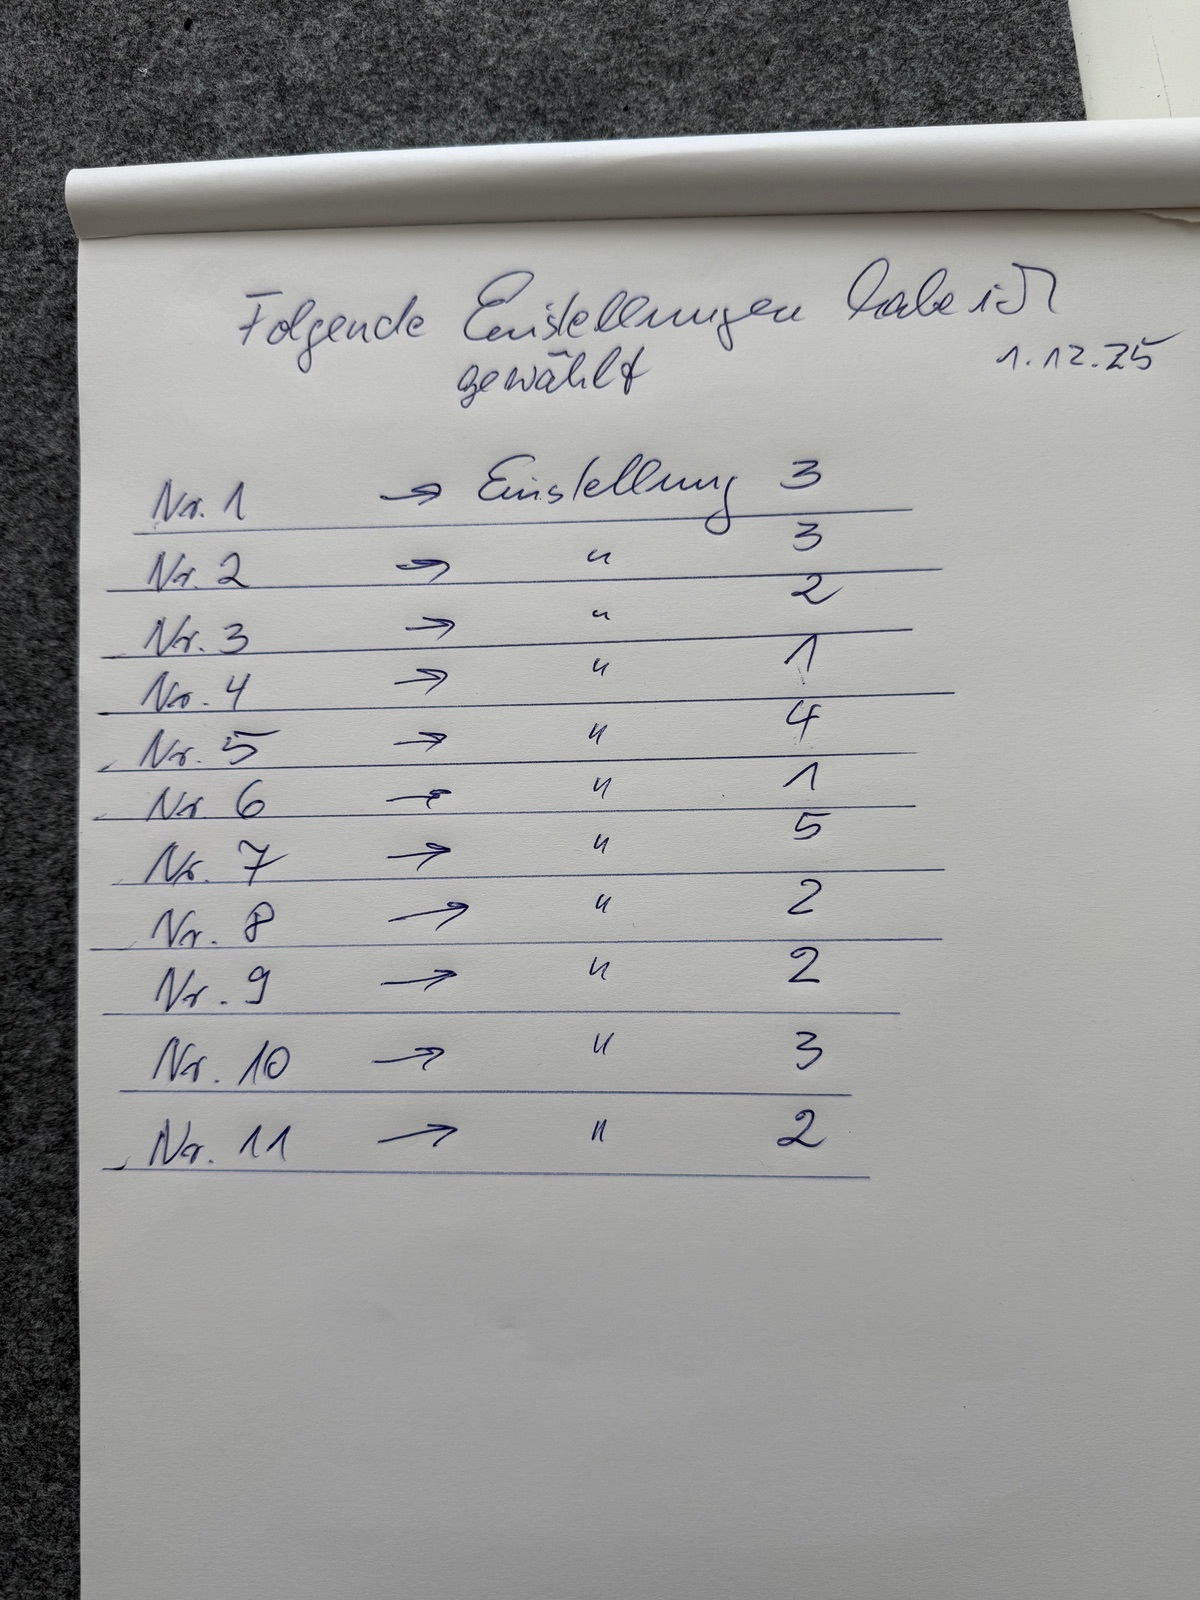 Folgende Einstellungen habe ich
gewählt 1.12.25
Nr. 1 → Einstellung 3
Nr. 2 → " 3
Nr. 3 → " 2
Nr. 4 → " 1
Nr. 5 → " 4
Nr 6 → " 1
Nr. 7 → " 5
Nr. 8 → " 2
Nr. 9 → " 2
Nr. 10 → " 3
Nr. 11 → " 2